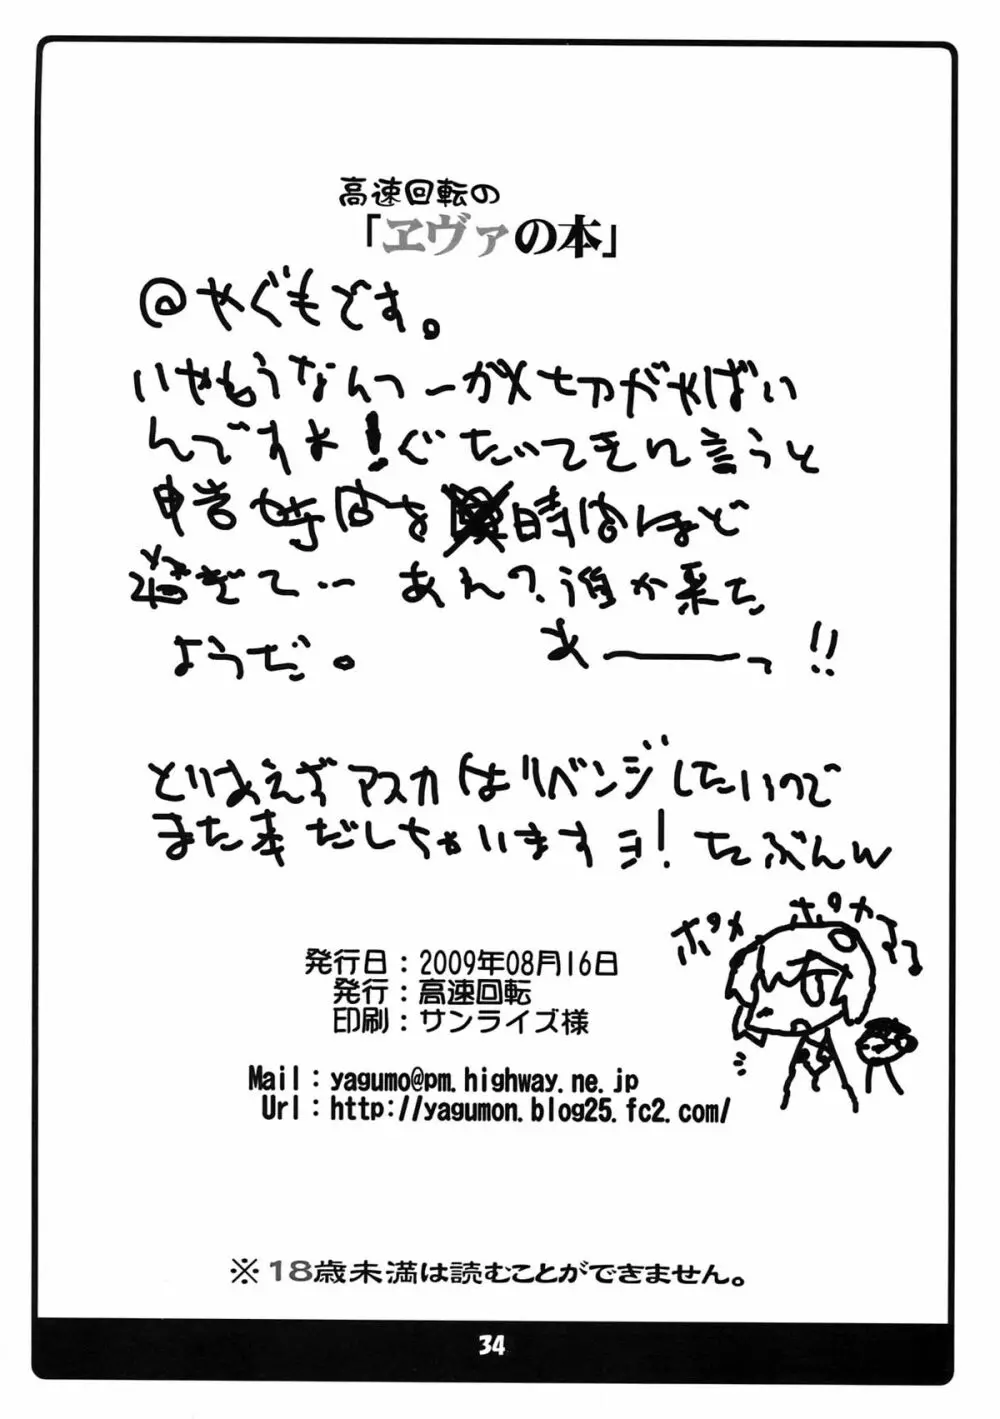 高速回転の
「ヱヴァの本」
@やぐもです。
いやもうなんつーかメ切がやばい
んですよ！ぐたいてきに言うと
申告時間を時間ほど
過ぎて…あれ？誰か来た
ようだ。 あーーっ!!
とりあえずアスカはリベンジしたいので
また本だしちゃいますヨ！たぶんw
ポカ ポカ
発行日：2009年08月16日
発行：高速回転
印刷：サンライズ様
Mail：yagumo@pm.highway.ne.jp
Url：http://yagumon.blog25.fc2.com/
※18歳未満は読むことができません。
34